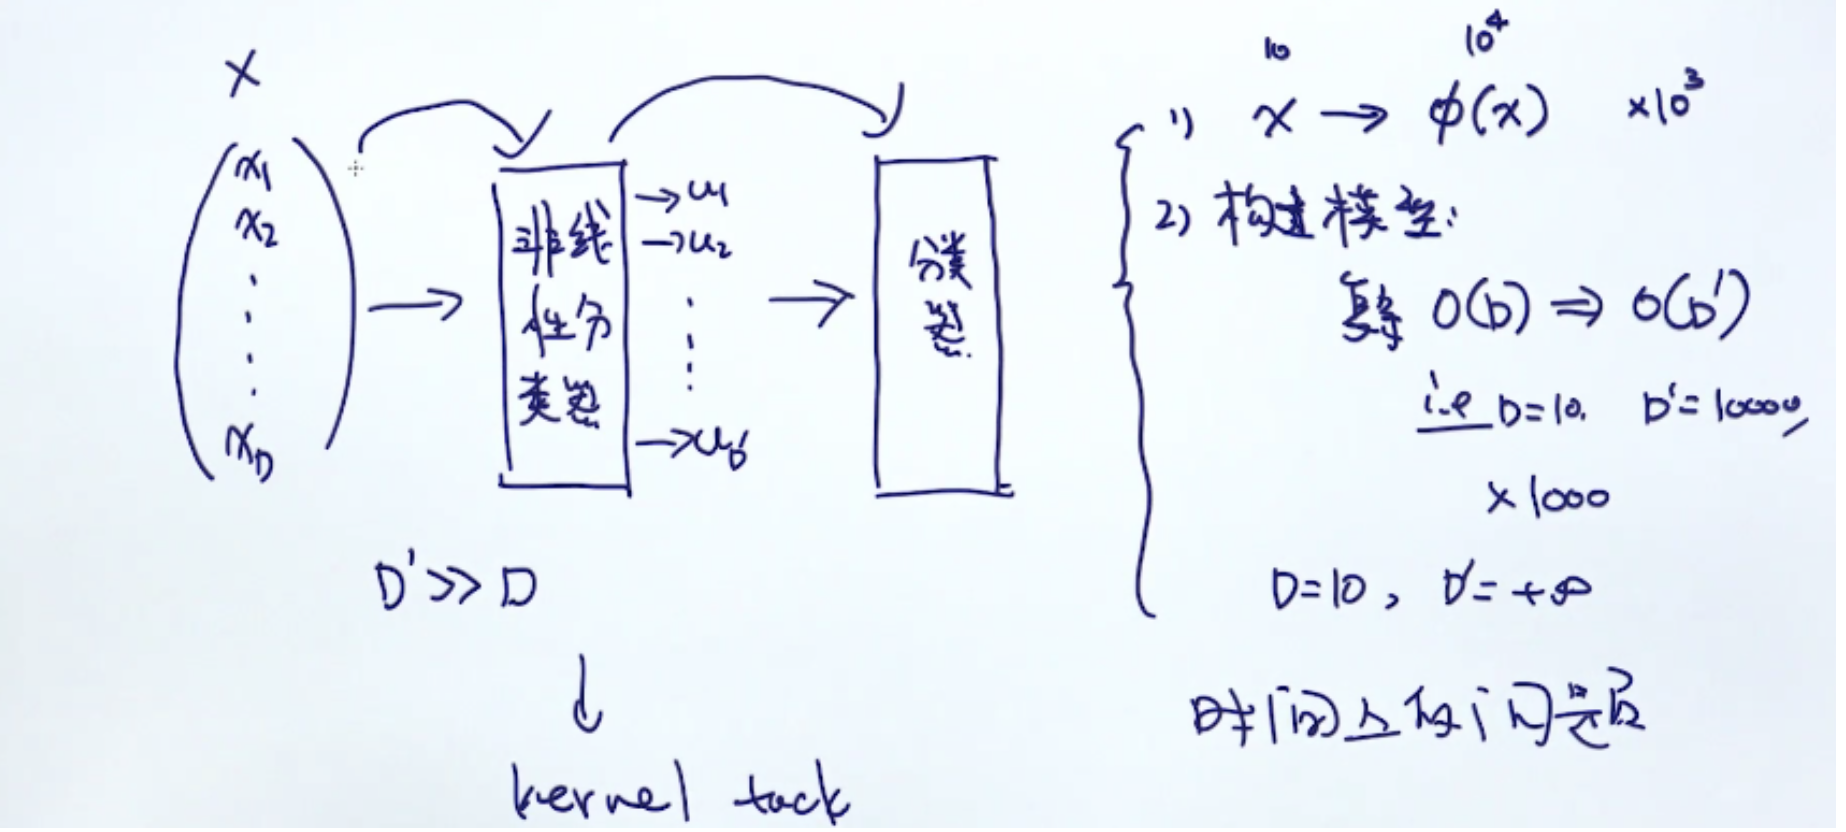 X
x₁
x₂
x_D
非线
性分
类器
→u₁
→u₂
→u_D'
分类
器
D' >> D
↓
kernel tack
1) x → φ(x) ×10³
10 10⁴
2) 构建模型:
复杂 O(D) ⇒ O(D')
i.e D=10. D'=10000,
×1000
D=10, D'=+∞
时间上的问题